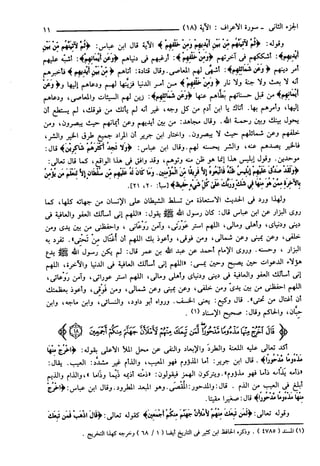 الجزء الثاني - سورة الأعراف : الآية (١٨) ١١
وقوله: ﴿ثُمَّ لَآتِيَنَّهُم مِّن بَيْنِ أَيْدِيهِمْ وَمِنْ خَلْفِهِمْ﴾ الآية قال ابن عباس: ﴿ثُمَّ لَآتِيَنَّهُم مِّن بَيْنِ
أَيْدِيهِمْ﴾: أشككهم في آخرتهم ﴿وَمِنْ خَلْفِهِمْ﴾: أرغبهم في دنياهم ﴿وَعَنْ أَيْمَانِهِمْ﴾: أشبّه عليهم
أمر دينهم ﴿وَعَن شَمَائِلِهِمْ﴾: أشهّي لهم المعاصي. وقال قتادة: أتاهم ﴿مِّن بَيْنِ أَيْدِيهِمْ﴾ فأخبرهم
أنه لا بعث ولا جنة ولا نار ﴿وَمِنْ خَلْفِهِمْ﴾ من أمر الدنيا فزيَّنها لهم ودعاهم إليها و﴿وَعَنْ
أَيْمَانِهِمْ﴾ من قبل حسناتهم بطّأهم عنها ﴿وَعَن شَمَائِلِهِمْ﴾: زين لهم السيئات والمعاصي، ودعاهم
إليها، وأمرهم بها. أتاك يا ابن آدم من كل وجه، غير أنه لم يأتك من فوقك، لم يستطع أن
يحول بينك وبين رحمة الله. وقال مجاهد: من بين أيديهم وعن أيمانهم حيث يبصرون، ومن
خلفهم وعن شمائلهم حيث لا يبصرون. واختار ابن جرير أن المراد جميع طرق الخير والشر،
فالخير يصدهم عنه، والشر يحسنه لهم. وقال ابن عباس: ﴿وَلَا تَجِدُ أَكْثَرَهُمْ شَاكِرِينَ﴾ قال:
موحدين. وقول إبليس هذا إنما هو ظن منه وتوهم، وقد وافق في هذا الواقع، كما قال تعالى:
﴿وَلَقَدْ صَدَّقَ عَلَيْهِمْ إِبْلِيسُ ظَنَّهُ فَاتَّبَعُوهُ إِلَّا فَرِيقًا مِّنَ الْمُؤْمِنِينَ. وَمَا كَانَ لَهُ عَلَيْهِم مِّن سُلْطَانٍ إِلَّا لِنَعْلَمَ مَن يُؤْمِنُ
بِالْآخِرَةِ مِمَّنْ هُوَ مِنْهَا فِي شَكٍّ وَرَبُّكَ عَلَى كُلِّ شَيْءٍ حَفِيظٌ﴾ [سبأ: ٢٠، ٢١].
ولهذا ورد في الحديث الاستعاذة من تسلط الشيطان على الإنسان من جهاته كلها، كما
روى البزار عن ابن عباس قال: كان رسول الله ﷺ يقول: «اللهم إني أسألك العفو والعافية في
ديني ودنياي، وأهلي ومالي، اللهم استر عورتي، وآمن روعاتي، واحفظني من بين يدي ومن
خلفي، وعن يميني وعن شمالي، ومن فوقي، وأعوذ بك اللهم أن أُغتال من تحتي». تفرد به
البزار، وحسنه. وروى الإمام أحمد عن عبد الله بن عمر قال: لم يكن رسول الله ﷺ يدع
هؤلاء الدعوات حين يصبح وحين يمسي: «اللهم إني أسألك العافية في الدنيا والآخرة، اللهم
إني أسألك العفو والعافية في ديني ودنياي وأهلي ومالي، اللهم استر عوراتي، وآمن روعاتي،
اللهم احفظني من بين يدي ومن خلفي، وعن يميني وعن شمالي، ومن فوقي، وأعوذ بعظمتك
أن أغتال من تحتي». قال وكيع: يعني الخسف. ورواه أبو داود، والنسائي، وابن ماجه، وابن
حبان، والحاكم وقال: صحيح الإسناد (١).
﴿قَالَ اخْرُجْ مِنْهَا مَذْءُومًا مَّدْحُورًا لَّمَن تَبِعَكَ مِنْهُمْ لَأَمْلَأَنَّ جَهَنَّمَ مِنكُمْ أَجْمَعِينَ﴾
أكد تعالى عليه اللعنة والطرد والإبعاد والنفي عن محل الملأ الأعلى بقوله: ﴿اخْرُجْ مِنْهَا
مَذْءُومًا مَّدْحُورًا﴾. قال ابن جرير: أما المذؤوم فهو المعيب، والذأم غير مشدّد: العيب. يقال:
«ذأمه يذأمه ذأما فهو مذؤوم». ويتركون الهمز فيقولون: «ذمته أذيمه ذيما وذاما» والذام والذيم
أبلغ في العيب من الذم. قال: والمدحور: المُقصَى. وهو المبعد المطرود. وقال ابن عباس: ﴿اخْرُجْ
مِنْهَا مَذْءُومًا مَّدْحُورًا﴾ قال: صغيرا مقيتا.
وقوله تعالى: ﴿لَّمَن تَبِعَكَ مِنْهُمْ لَأَمْلَأَنَّ جَهَنَّمَ مِنكُمْ أَجْمَعِينَ﴾ كقوله تعالى: ﴿قَالَ اذْهَبْ فَمَن تَبِعَكَ
(١) المسند (٤٧٨٥)، وذكره الحافظ ابن كثير في التاريخ أيضا (١ / ٦٨) وخرجه كهذا التخريج.